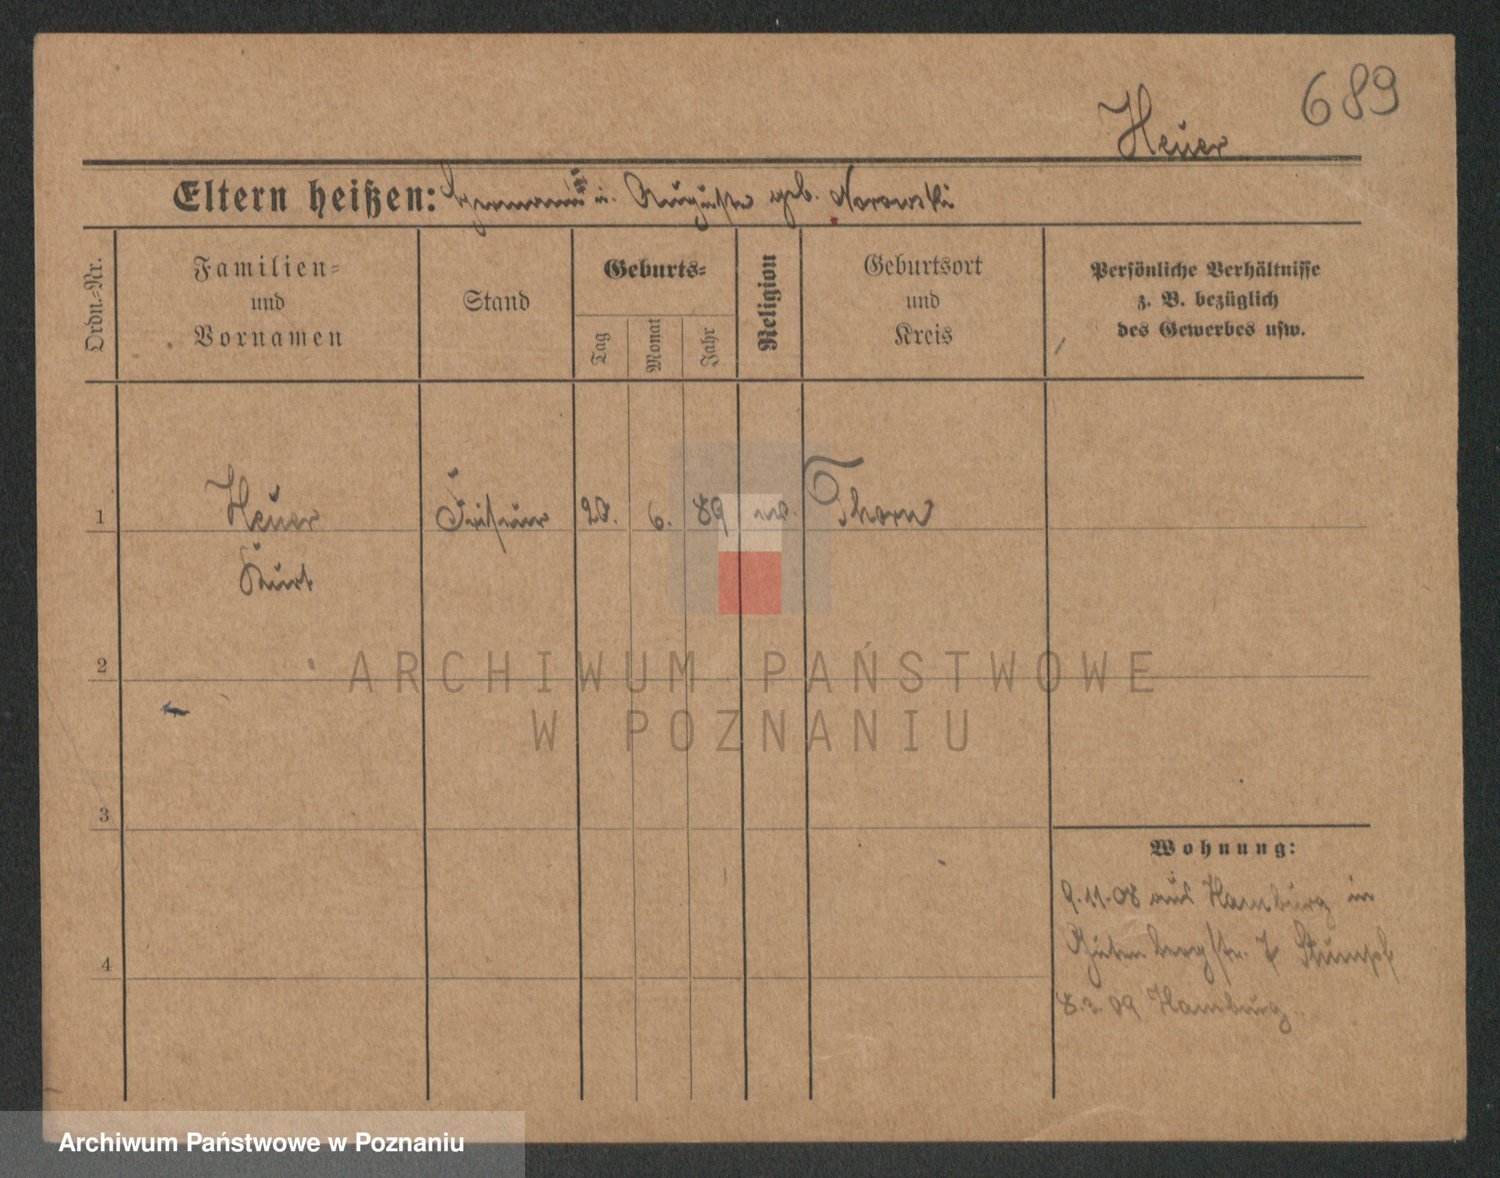 689
Heuer
Eltern heißen: Hermann u. Auguste geb. Norowski
Ordn.-Nr.
Familien-
und
Vornamen
Stand
Geburts-
Tag
Monat
Jahr
Religion
Geburtsort
und
Kreis
Persönliche Verhältnisse
z. B. bezüglich
des Gewerbes usw.
1 Heuer Friseur 20. 6. 89 Thorn
Kurt
2
ARCHIWUM PAŃSTWOWE
W POZNANIU
3
Wohnung:
9.11.08 aus Hamburg in
Gutenbergstr. 7 Stumpf
4
8.3.09 Hamburg
Archiwum Państwowe w Poznaniu